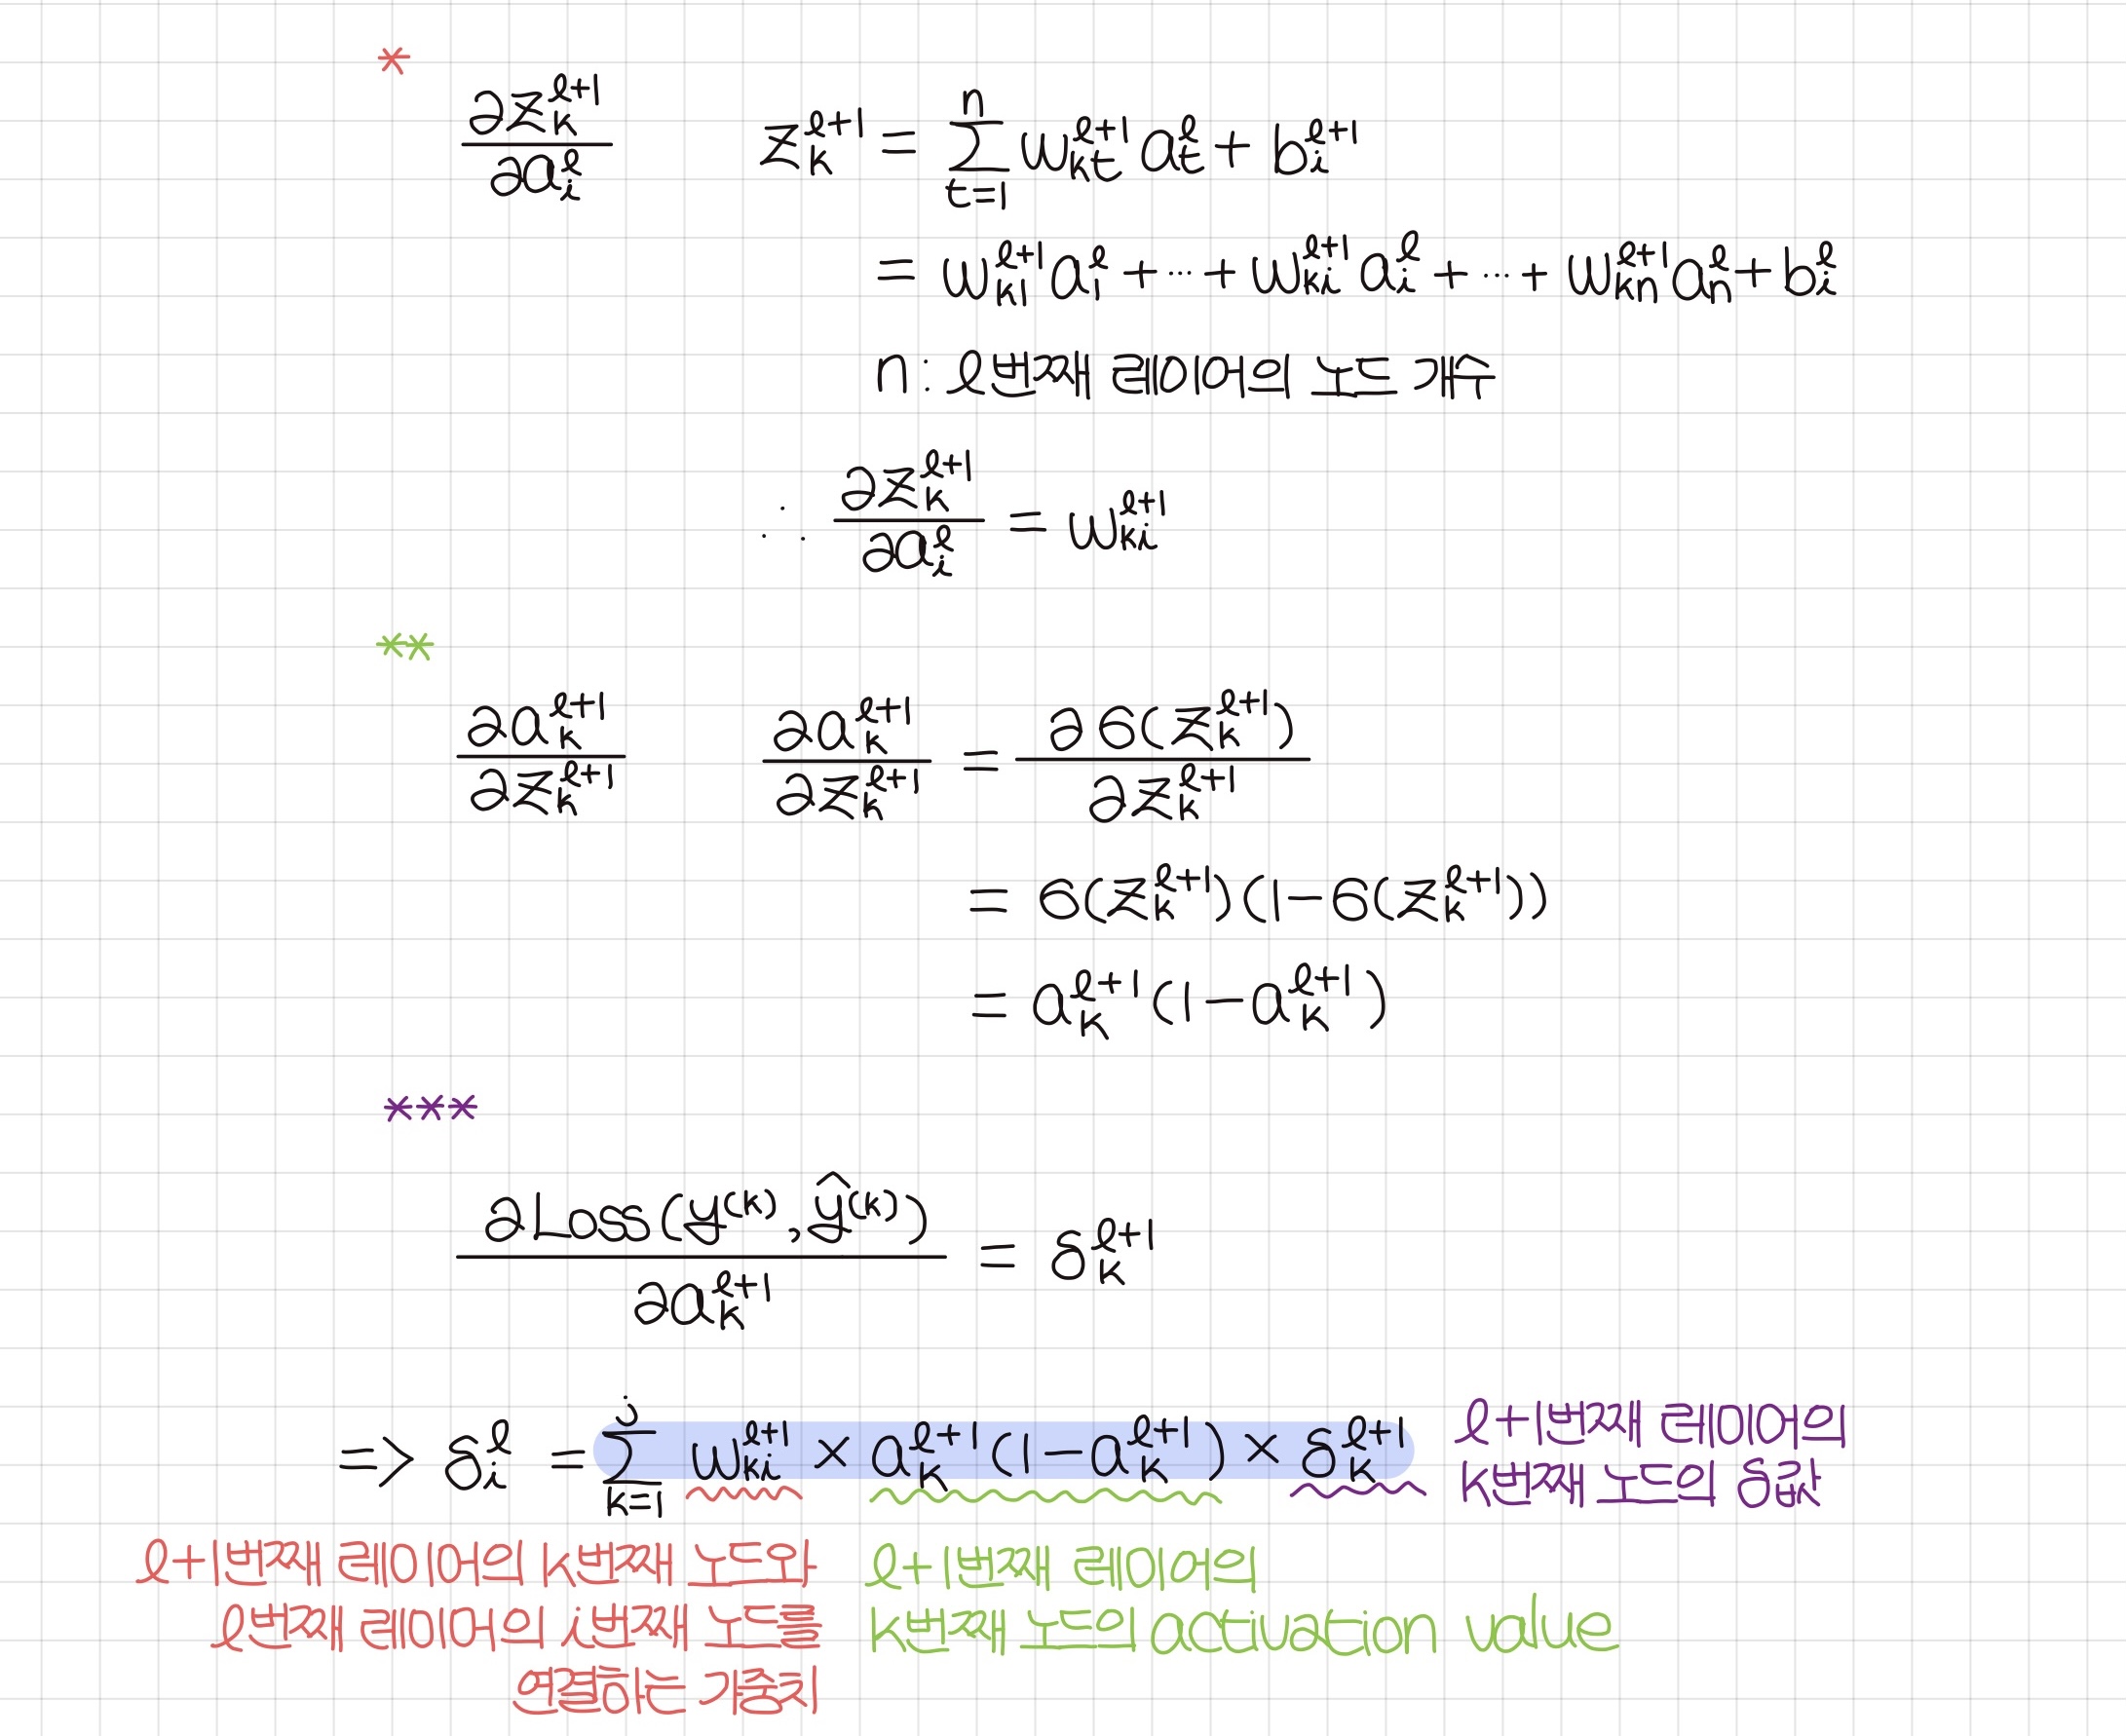 *
∂z_k^{ℓ+1} / ∂a_i^ℓ    z_k^{ℓ+1} = Σ_{t=1}^{n} w_{kt}^{ℓ+1} a_t^ℓ + b_i^{ℓ+1}
= w_{k1}^{ℓ+1} a_1^ℓ + ··· + w_{ki}^{ℓ+1} a_i^ℓ + ··· + w_{kn}^{ℓ+1} a_n^ℓ + b_i^ℓ
n: ℓ번째 레이어의 노드 개수
∴ ∂z_k^{ℓ+1} / ∂a_i^ℓ = w_{ki}^{ℓ+1}
**
∂a_k^{ℓ+1} / ∂z_k^{ℓ+1}    ∂a_k^{ℓ+1} / ∂z_k^{ℓ+1} = ∂б(z_k^{ℓ+1}) / ∂z_k^{ℓ+1}
= б(z_k^{ℓ+1})(1-б(z_k^{ℓ+1}))
= a_k^{ℓ+1}(1-a_k^{ℓ+1})
***
∂Loss(y^{(k)}, ŷ^{(k)}) / ∂a_k^{ℓ+1} = δ_k^{ℓ+1}
=> δ_i^ℓ = Σ_{k=1}^{j} w_{ki}^{ℓ+1} × a_k^{ℓ+1}(1-a_k^{ℓ+1}) × δ_k^{ℓ+1}
ℓ+1번째 레이어의
k번째 노드의 δ값
ℓ+1번째 레이어의 k번째 노드와
ℓ번째 레이어의 i번째 노드를
연결하는 가중치
ℓ+1번째 레이어의
k번째 노드의 activation value